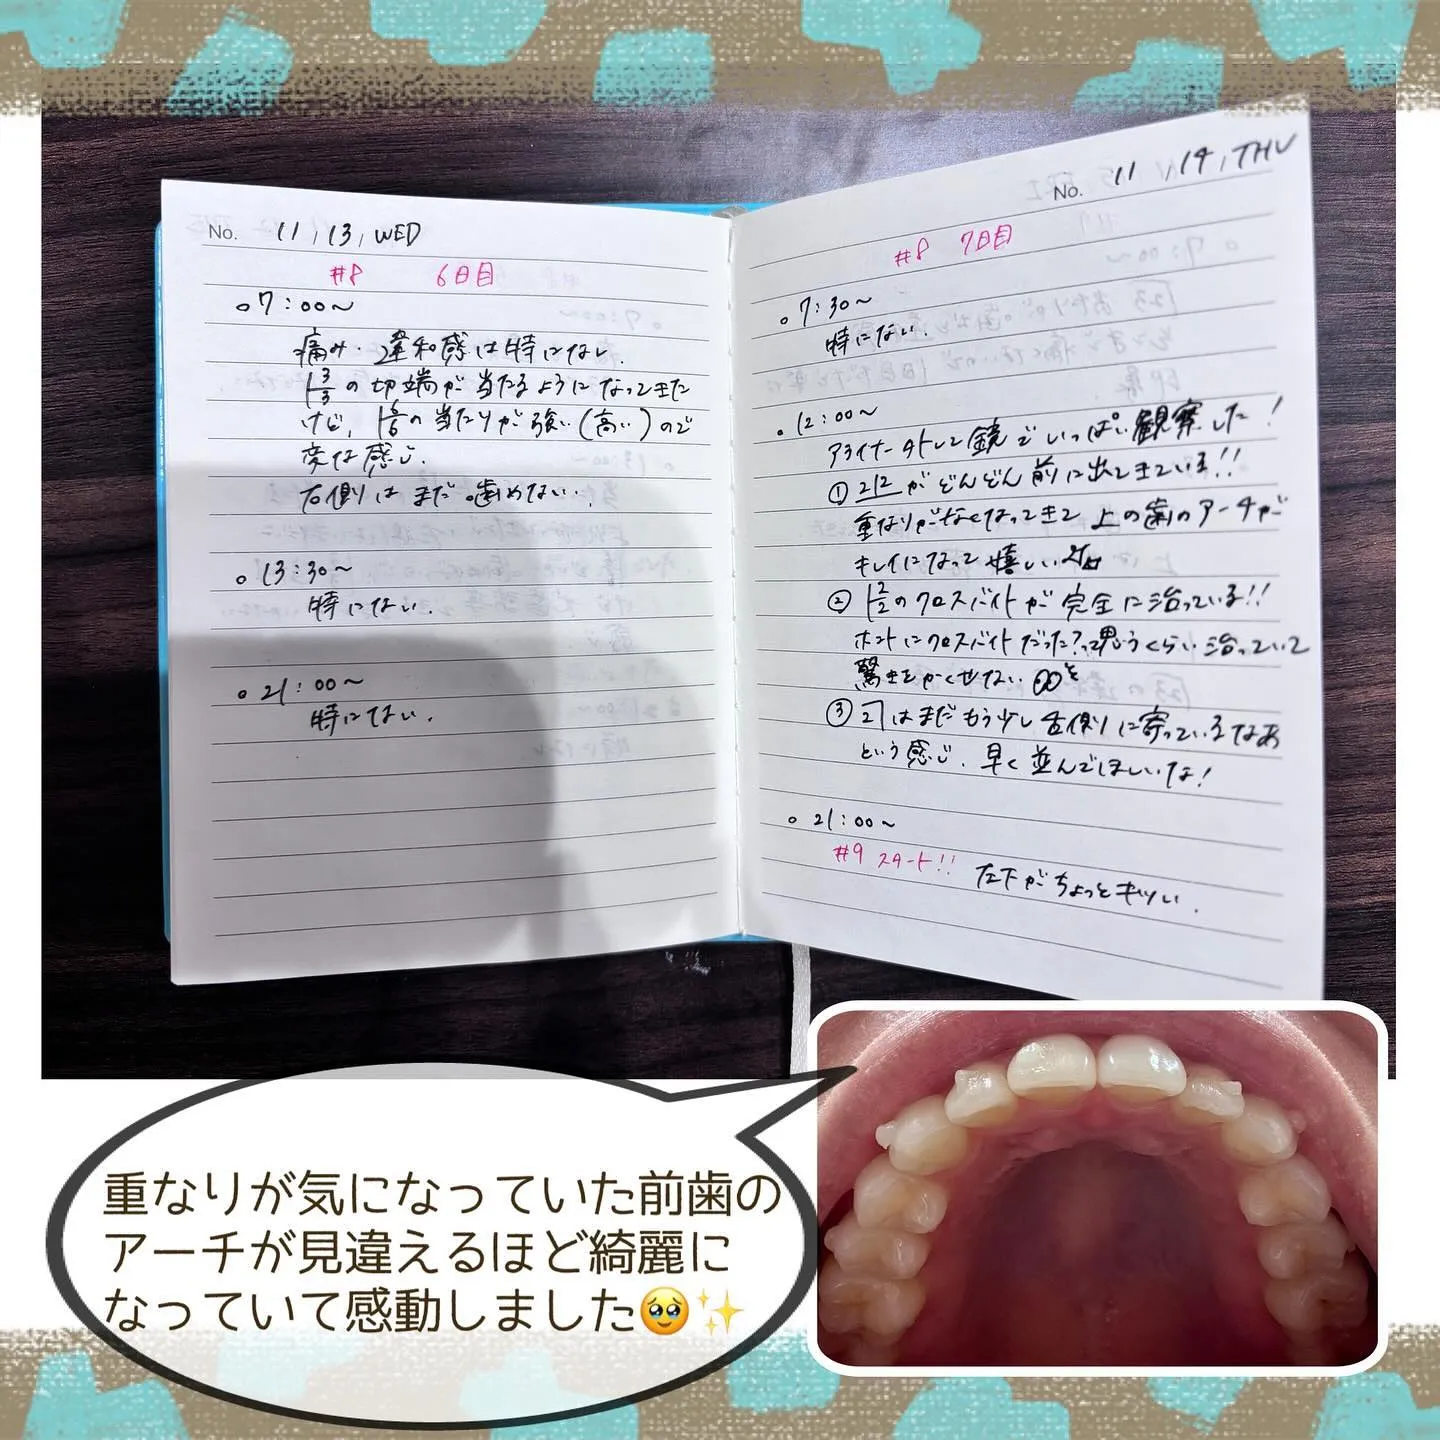 No. 11, 13, WED
#8 6日目
○7:00〜
痛み・違和感は特にない.
├3/3の切端が当たるようになってきた
けど, ├6/6の当たりが強い(高い)ので
変な感じ.
右側はまだ噛めない.
○13:30〜
特にない.
○21:00〜
特にない.
No. 11, 14, THU
#8 7日目
○7:30〜
特にない.
○12:00〜
アライナー外して鏡でいっぱい観察した!
①2|2がどんどん前に出てきている!!
重なりがなくなってきて上の歯のアーチが
キレイになって嬉しい
②├2/2のクロスバイトが完全に治っている!!
ホントにクロスバイトだった?って思うくらい治っていて
驚きをかくせない
③2┐はまだもう少し舌側に寄っているなあ
という感じ. 早く並んでほしいな!
○21:00〜
#9 スタート!! 左下がちょっとキツい.
重なりが気になっていた前歯の
アーチが見違えるほど綺麗に
なっていて感動しました🥹✨